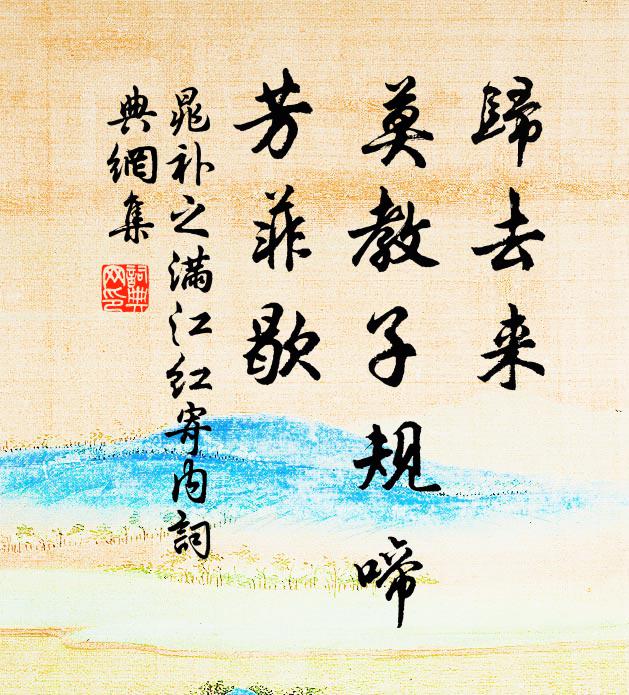 歸去来
莫教子規啼
芳菲歇
晁补之滿江紅寄内詞
典網集
詞典网印